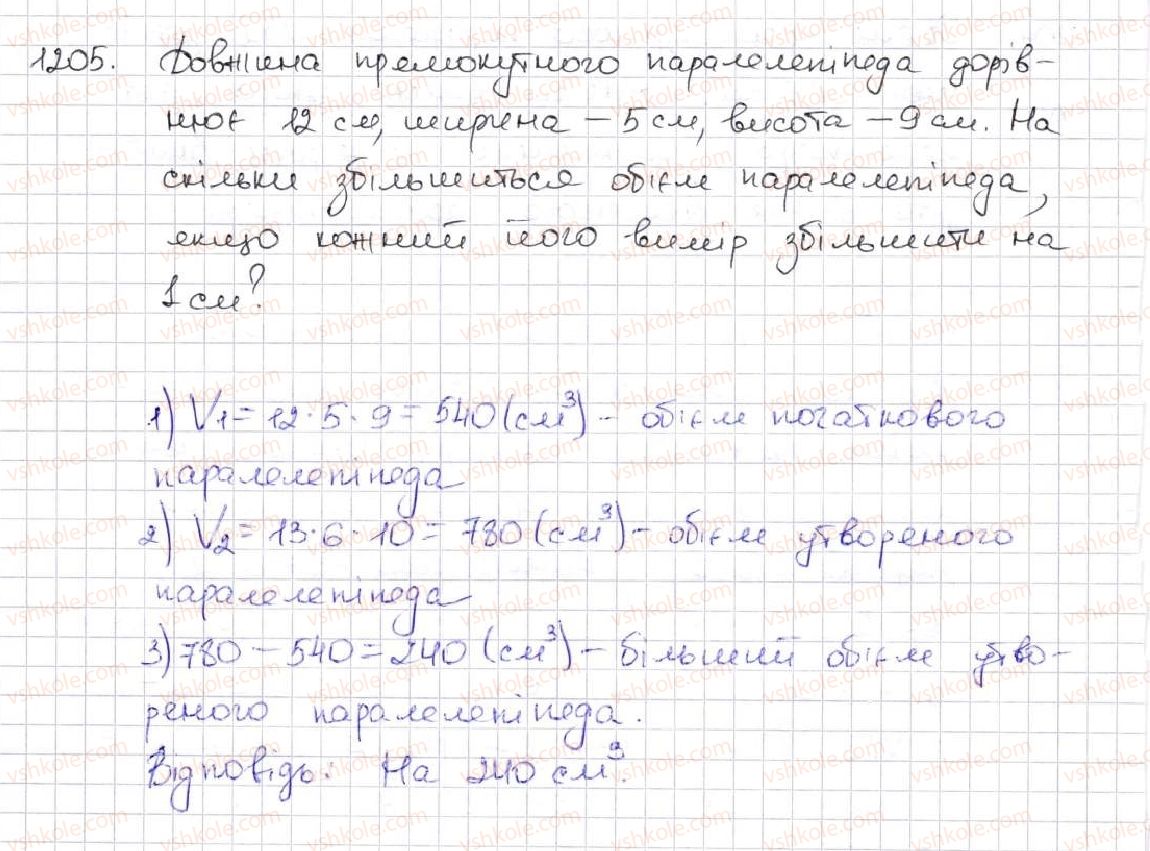 1205. Довжина прямокутного паралелепіпеда дорів-
нює 12 см, ширина – 5 см, висота – 9 см. На
скільки збільшиться об'єм паралелепіпеда,
якщо кожний його вимір збільшити на
1 см?
1) V1 = 12 · 5 · 9 = 540 (см³) – об'єм початкового
паралелепіпеда
2) V2 = 13 · 6 · 10 = 780 (см³) – об'єм утвореного
паралелепіпеда
3) 780 – 540 = 240 (см³) – більший об'єм утво-
реного паралелепіпеда.
Відповідь: На 240 см³.
vshkole.com